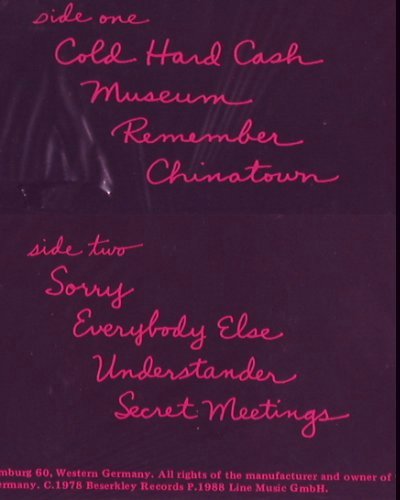 side one
Cold Hard Cash
Museum
Remember
Chinatown
side two
Sorry
Everybody Else
Understander
Secret Meetings
mburg 60, Western Germany. All rights of the manufacturer and owner of
ermany. C.1978 Beserkley Records P.1988 Line Music GmbH.